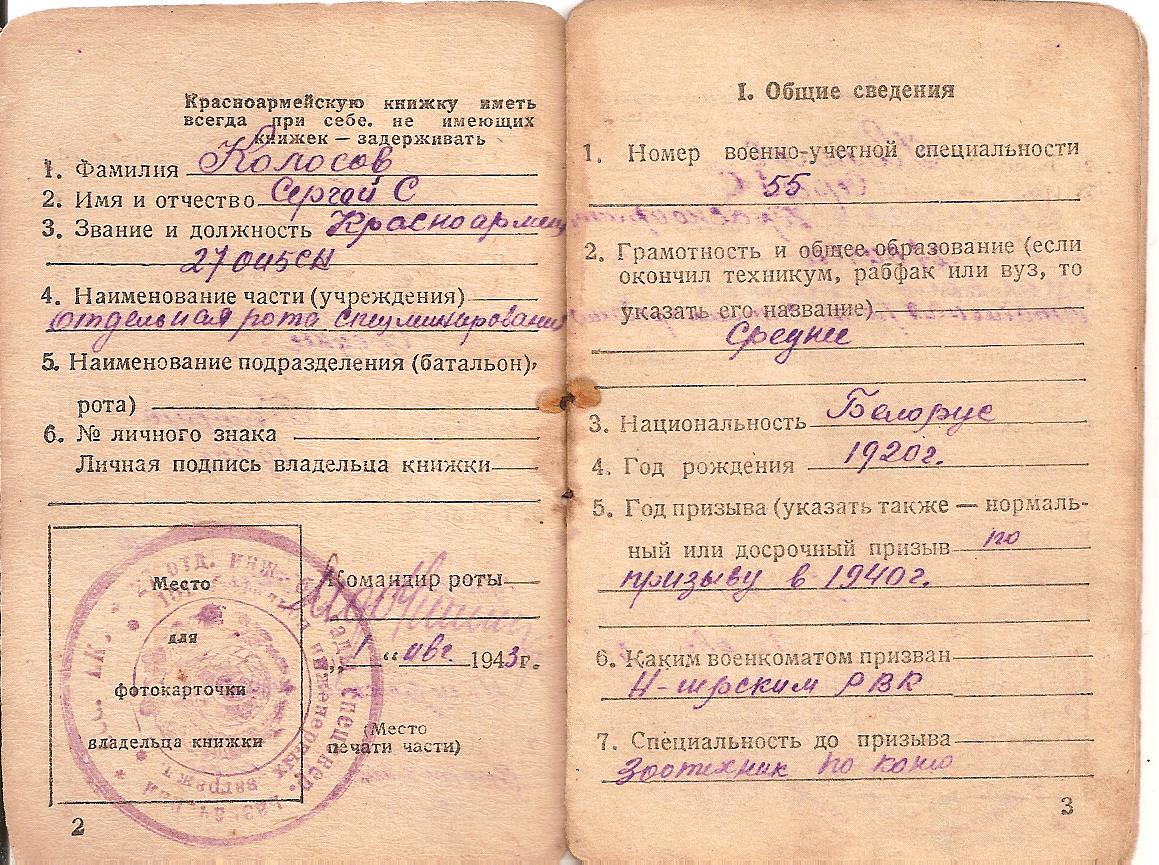 Красноармейскую книжку иметь
всегда при себе. не имеющих
книжек — задерживать
1. Фамилия Колосов
2. Имя и отчество Сергей С
3. Звание и должность Красноармеец
27
4. Наименование части (учреждения)
отдельная рота спецминирования
5. Наименование подразделения (батальон),
рота)
6. № личного знака
Личная подпись владельца книжки
Место
для
фотокарточки
владельца книжки
Командир роты
„1“ авг 1943г.
(Место
печати части)
2
I. Общие сведения
1. Номер военно-учетной специальности
55
2. Грамотность и общее образование (если
окончил техникум, рабфак или вуз, то
указать его название)
Средне
3. Национальность Белорус
4. Год рождения 1920г.
5. Год призыва (указать также — нормаль-
ный или досрочный призыв по
призыву в 1940г.
6. Каким военкоматом призван
РВК
7. Специальность до призыва
Зоотехник по коню
3